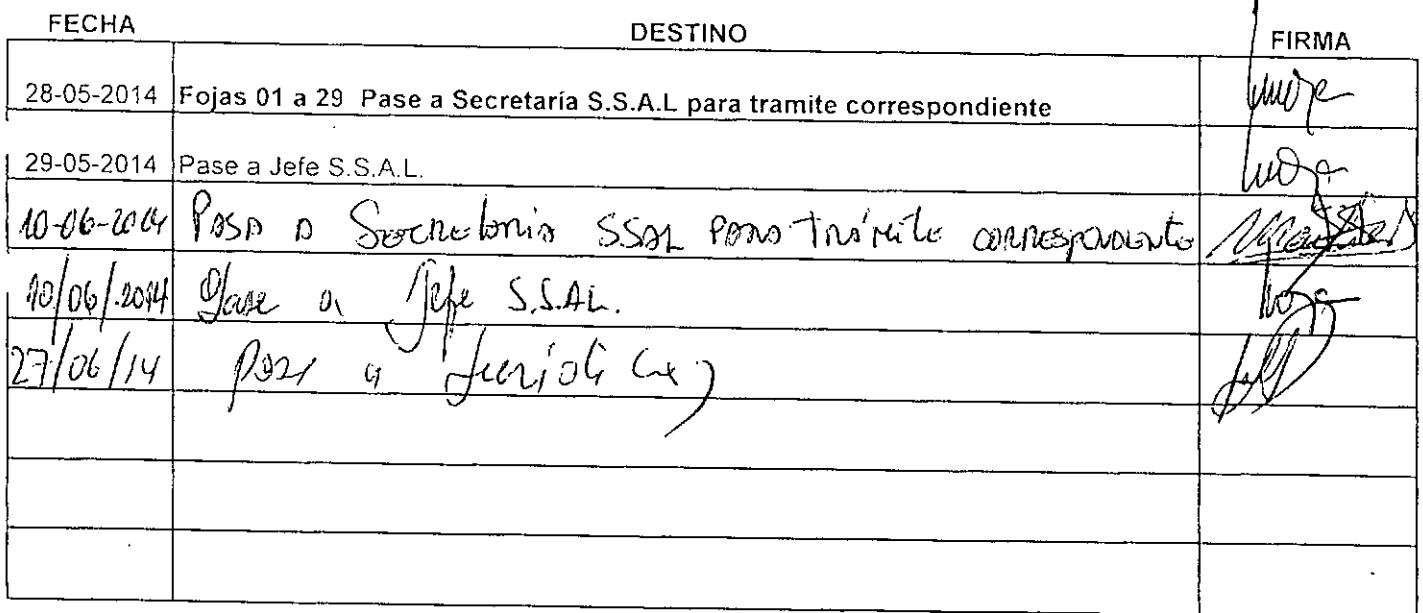 FECHA DESTINO FIRMA
28-05-2014 Fojas 01 a 29 Pase a Secretaría S.S.A.L para tramite correspondiente
29-05-2014 Pase a Jefe S.S.A.L.
10-06-2014 Pasa a Secretaria SSAL para trámite correspondiente
10/06/2014 Pase a Jefe S.S.AL.
27/06/14 Pase a Juridica